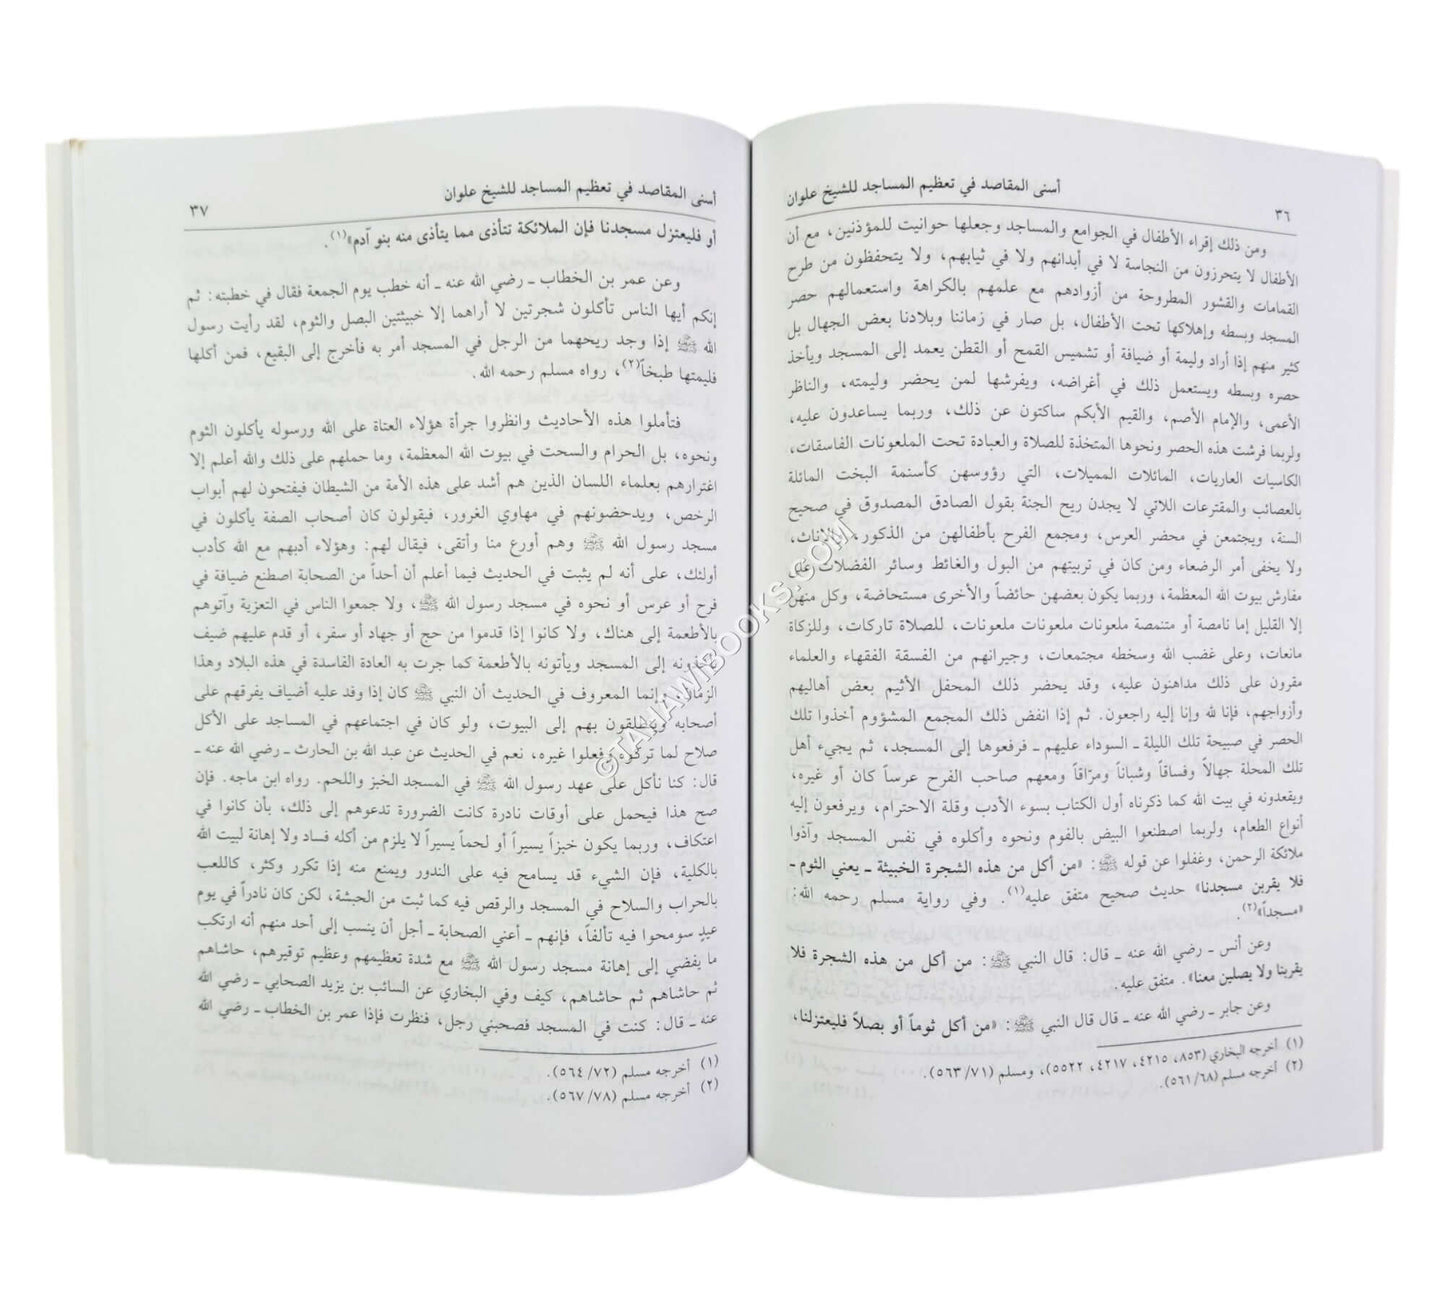 أسنى المقاصد في تعظيم المساجد للشيخ علوان
٣٦
ومن ذلك إقراء الأطفال في الجوامع والمساجد وجعلها حوانيت للمؤذنين، مع أن
الأطفال لا يتحرزون من النجاسة لا في أبدانهم ولا في ثيابهم، ولا يتحفظون من طرح
القمامات والقشور المطروحة من أزوادهم مع علمهم بالكراهة واستعمالهم حصر
المسجد وبسطه وإهلاكها تحت الأطفال، بل صار في زماننا وبلادنا بعض الجهال بل
كثير منهم إذا أراد وليمة أو ضيافة أو تشميس القمح أو القطن يعمد إلى المسجد ويأخذ
حصره وبسطه ويستعمل ذلك في أغراضه، ويفرشها لمن يحضر وليمته، والناظر
الأعمى، والإمام الأصم، والقيم الأبكم ساكتون عن ذلك، وربما يساعدون عليه،
ولربما فرشت هذه الحصر ونحوها المتخذة للصلاة والعبادة تحت الملعونات الفاسقات،
الكاسيات العاريات، المائلات المميلات، التي رؤوسهن كأسنمة البخت المائلة
بالعصائب والمقترعات اللاتي لا يجدن ريح الجنة بقول الصادق المصدوق في صحيح
السنة، ويجتمعن في محضر العرس، ومجمع الفرح بأطفالهن من الذكور، والإناث،
ولا يخفى أمر الرضعاء ومن كان في تربيتهم من البول والغائط وسائر الفضلات على
مفارش بيوت الله المعظمة، وربما يكون بعضهن حائضاً والأخرى مستحاضة، وكل منهن
إلا القليل إما نامصة أو متنمصة ملعونات ملعونات ملعونات، للصلاة تاركات، وللزكاة
مانعات، وعلى غضب الله وسخطه مجتمعات، وجيرانهم من الفسقة الفقهاء والعلماء
مقرون على ذلك مداهنون عليه، وقد يحضر ذلك المحفل الأثيم بعض أهاليهم
وأزواجهم، فإنا لله وإنا إليه راجعون. ثم إذا انفض ذلك المجمع المشؤوم أخذوا تلك
الحصر في صبيحة تلك الليلة ـ السوداء عليهم ـ فرفعوها إلى المسجد، ثم يجيء أهل
تلك المحلة جهالاً وفساقاً وشباناً ومرّاقاً ومعهم صاحب الفرح عرساً كان أو غيره،
ويقعدونه في بيت الله كما ذكرناه أول الكتاب بسوء الأدب وقلة الاحترام، ويرفعون إليه
أنواع الطعام، ولربما اصطنعوا البيض بالفوم ونحوه وأكلوه في نفس المسجد وآذوا
ملائكة الرحمن، وغفلوا عن قوله ﷺ: «من أكل من هذه الشجرة الخبيثة ـ يعني الثوم ـ
فلا يقربن مسجدنا» حديث صحيح متفق عليه(١). وفي رواية مسلم رحمه الله:
«مسجداً»(٢).
وعن أنس ـ رضي الله عنه ـ قال: قال النبي ﷺ: من أكل من هذه الشجرة فلا
يقربنا ولا يصلين معنا». متفق عليه.
وعن جابر ـ رضي الله عنه ـ قال قال النبي ﷺ: «من أكل ثوماً أو بصلاً فليعتزلنا،
(١) أخرجه البخاري (٨٥٣، ٤٢١٥، ٤٢١٧، ٥٥٢٢)، ومسلم (٥٦٣/٧١).
(٢) أخرجه مسلم (٥٦١/٦٨).
أسنى المقاصد في تعظيم المساجد للشيخ علوان
٣٧
أو فليعتزل مسجدنا فإن الملائكة تتأذى مما يتأذى منه بنو آدم»(١).
وعن عمر بن الخطاب ـ رضي الله عنه ـ أنه خطب يوم الجمعة فقال في خطبته: ثم
إنكم أيها الناس تأكلون شجرتين لا أراهما إلا خبيثتين البصل والثوم، لقد رأيت رسول
الله ﷺ إذا وجد ريحهما من الرجل في المسجد أمر به فأخرج إلى البقيع، فمن أكلها
فليمتها طبخاً(٢)، رواه مسلم رحمه الله.
فتأملوا هذه الأحاديث وانظروا جرأة هؤلاء العتاة على الله ورسوله يأكلون الثوم
ونحوه، بل الحرام والسحت في بيوت الله المعظمة، وما حملهم على ذلك والله أعلم إلا
اغترارهم بعلماء اللسان الذين هم أشد على هذه الأمة من الشيطان فيفتحون لهم أبواب
الرخص، ويدحضونهم في مهاوي الغرور، فيقولون كان أصحاب الصفة يأكلون في
مسجد رسول الله ﷺ وهم أورع منا وأتقى، فيقال لهم: وهؤلاء أدبهم مع الله كأدب
أولئك، على أنه لم يثبت في الحديث فيما أعلم أن أحداً من الصحابة اصطنع ضيافة في
فرح أو عرس أو نحوه في مسجد رسول الله ﷺ، ولا جمعوا الناس في التعزية وآتوهم
بالأطعمة إلى هناك، ولا كانوا إذا قدموا من حج أو جهاد أو سفر، أو قدم عليهم ضيف
يأخذونه إلى المسجد ويأتونه بالأطعمة كما جرت به العادة الفاسدة في هذه البلاد وهذا
الزمان، وإنما المعروف في الحديث أن النبي ﷺ كان إذا وفد عليه أضياف يفرقهم على
أصحابه وينطلقون بهم إلى البيوت، ولو كان في اجتماعهم في المساجد على الأكل
صلاح لما تركوه وفعلوا غيره، نعم في الحديث عن عبد الله بن الحارث ـ رضي الله عنه ـ
قال: كنا نأكل على عهد رسول الله ﷺ في المسجد الخبز واللحم. رواه ابن ماجه. فإن
صح هذا فيحمل على أوقات نادرة كانت الضرورة تدعوهم إلى ذلك، بأن كانوا في
اعتكاف، وربما يكون خبزاً يسيراً أو لحماً يسيراً لا يلزم من أكله فساد ولا إهانة لبيت الله
بالكلية، فإن الشيء قد يسامح فيه على الندور ويمنع منه إذا تكرر وكثر، كاللعب
بالحراب والسلاح في المسجد والرقص فيه كما ثبت من الحبشة، لكن كان نادراً في يوم
عيدٍ سومحوا فيه تألفاً، فإنهم ـ أعني الصحابة ـ أجل أن ينسب إلى أحد منهم أنه ارتكب
ما يفضي إلى إهانة مسجد رسول الله ﷺ مع شدة تعظيمهم وعظيم توقيرهم، حاشاهم
ثم حاشاهم ثم حاشاهم، كيف وفي البخاري عن السائب بن يزيد الصحابي ـ رضي الله
عنه ـ قال: كنت في المسجد فصحبني رجل، فنظرت فإذا عمر بن الخطاب ـ رضي الله
(١) أخرجه مسلم (٥٦٤/٧٢).
(٢) أخرجه مسلم (٥٦٧/٧٨).
©TAHAWIBOOKS.COM